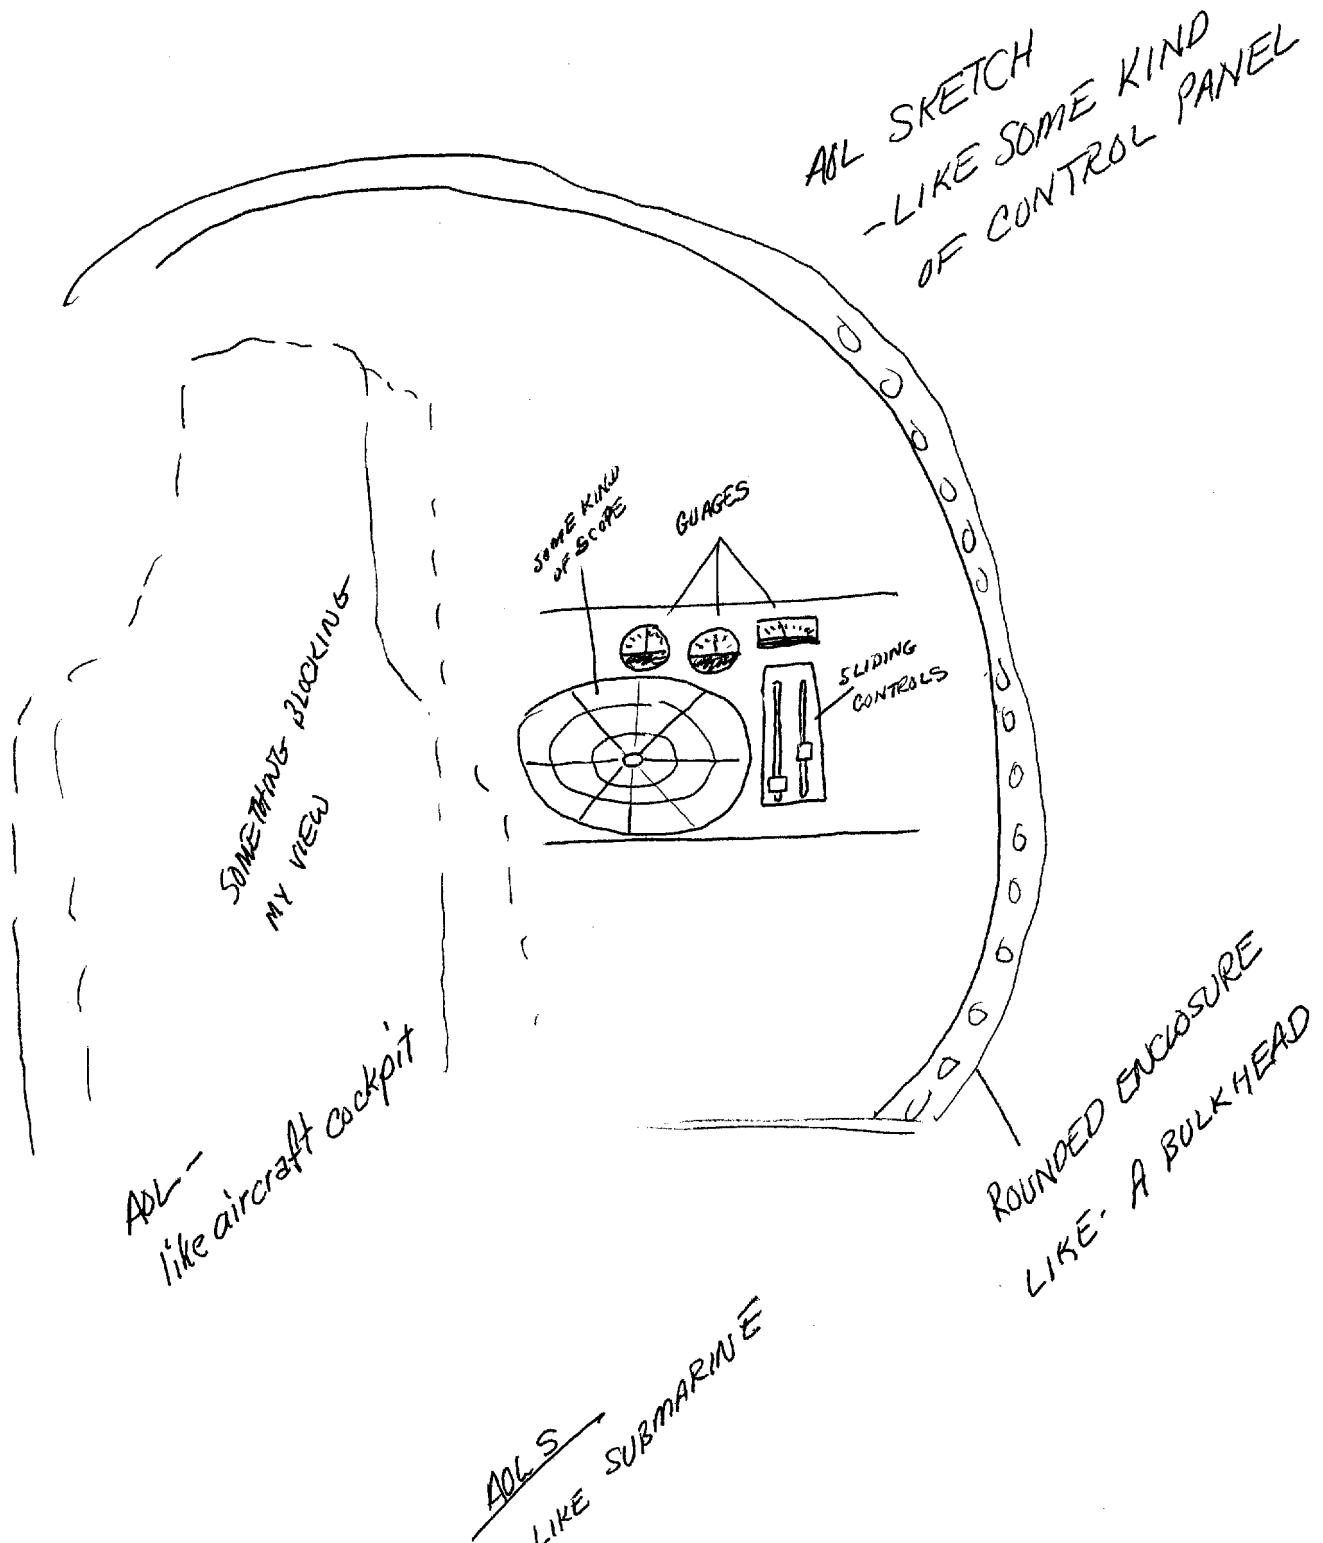 AOL SKETCH
-LIKE SOME KIND
OF CONTROL PANEL
SOME KIND
OF SCOPE
GUAGES
SLIDING
CONTROLS
SOMETHING BLOCKING
MY VIEW
AOL-
like aircraft cockpit
ROUNDED ENCLOSURE
LIKE- A BULKHEAD
AOL S
LIKE SUBMARINE